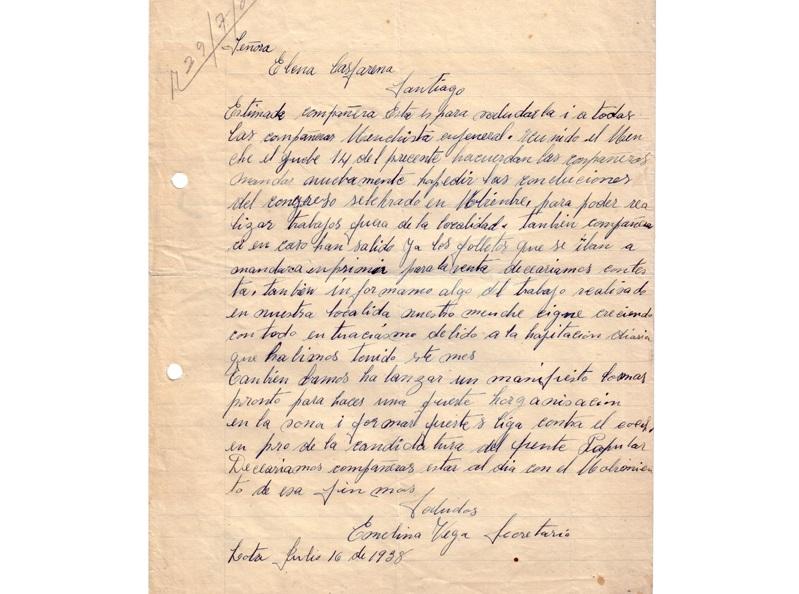 R 29/7/
Señora
Elena Caffarena
Santiago
Estimada compañera Esta es para saludarla i a todas
las compañeras Menchista en jeneral. Reunido el Men
che el juebe 14 del precente hacuerdan las compañeras
mandar nuebamente ha pedir las concluciones
del congreso selebrado en Nobienbre, para poder rea
lizar trabajos fuera de la localidad. tanbien compañera
ci en caso han salido ya los folletos que se iban a
mandar a inprimir para la venta deceariamos contes
ta, tanbien informamo algo del trabajo realisado
en nuestra localida nuestro menche cigue creciendo
con todo entuciasmo debido a la hajitación diaria
que habimos tenido este mes
Tanbien bamos ha lanzar un manifiesto lo mas
pronto para hacer una fuerte horganisación
en la sona i formar fuertes liga contra el
en pro de la candidatura del frente Popular
Deceariamos compañeras estar al dia con el Mobimien
to de esa sin mas
Saludos
Emelina Vega Secretario
Lota Julio 16 de 1938